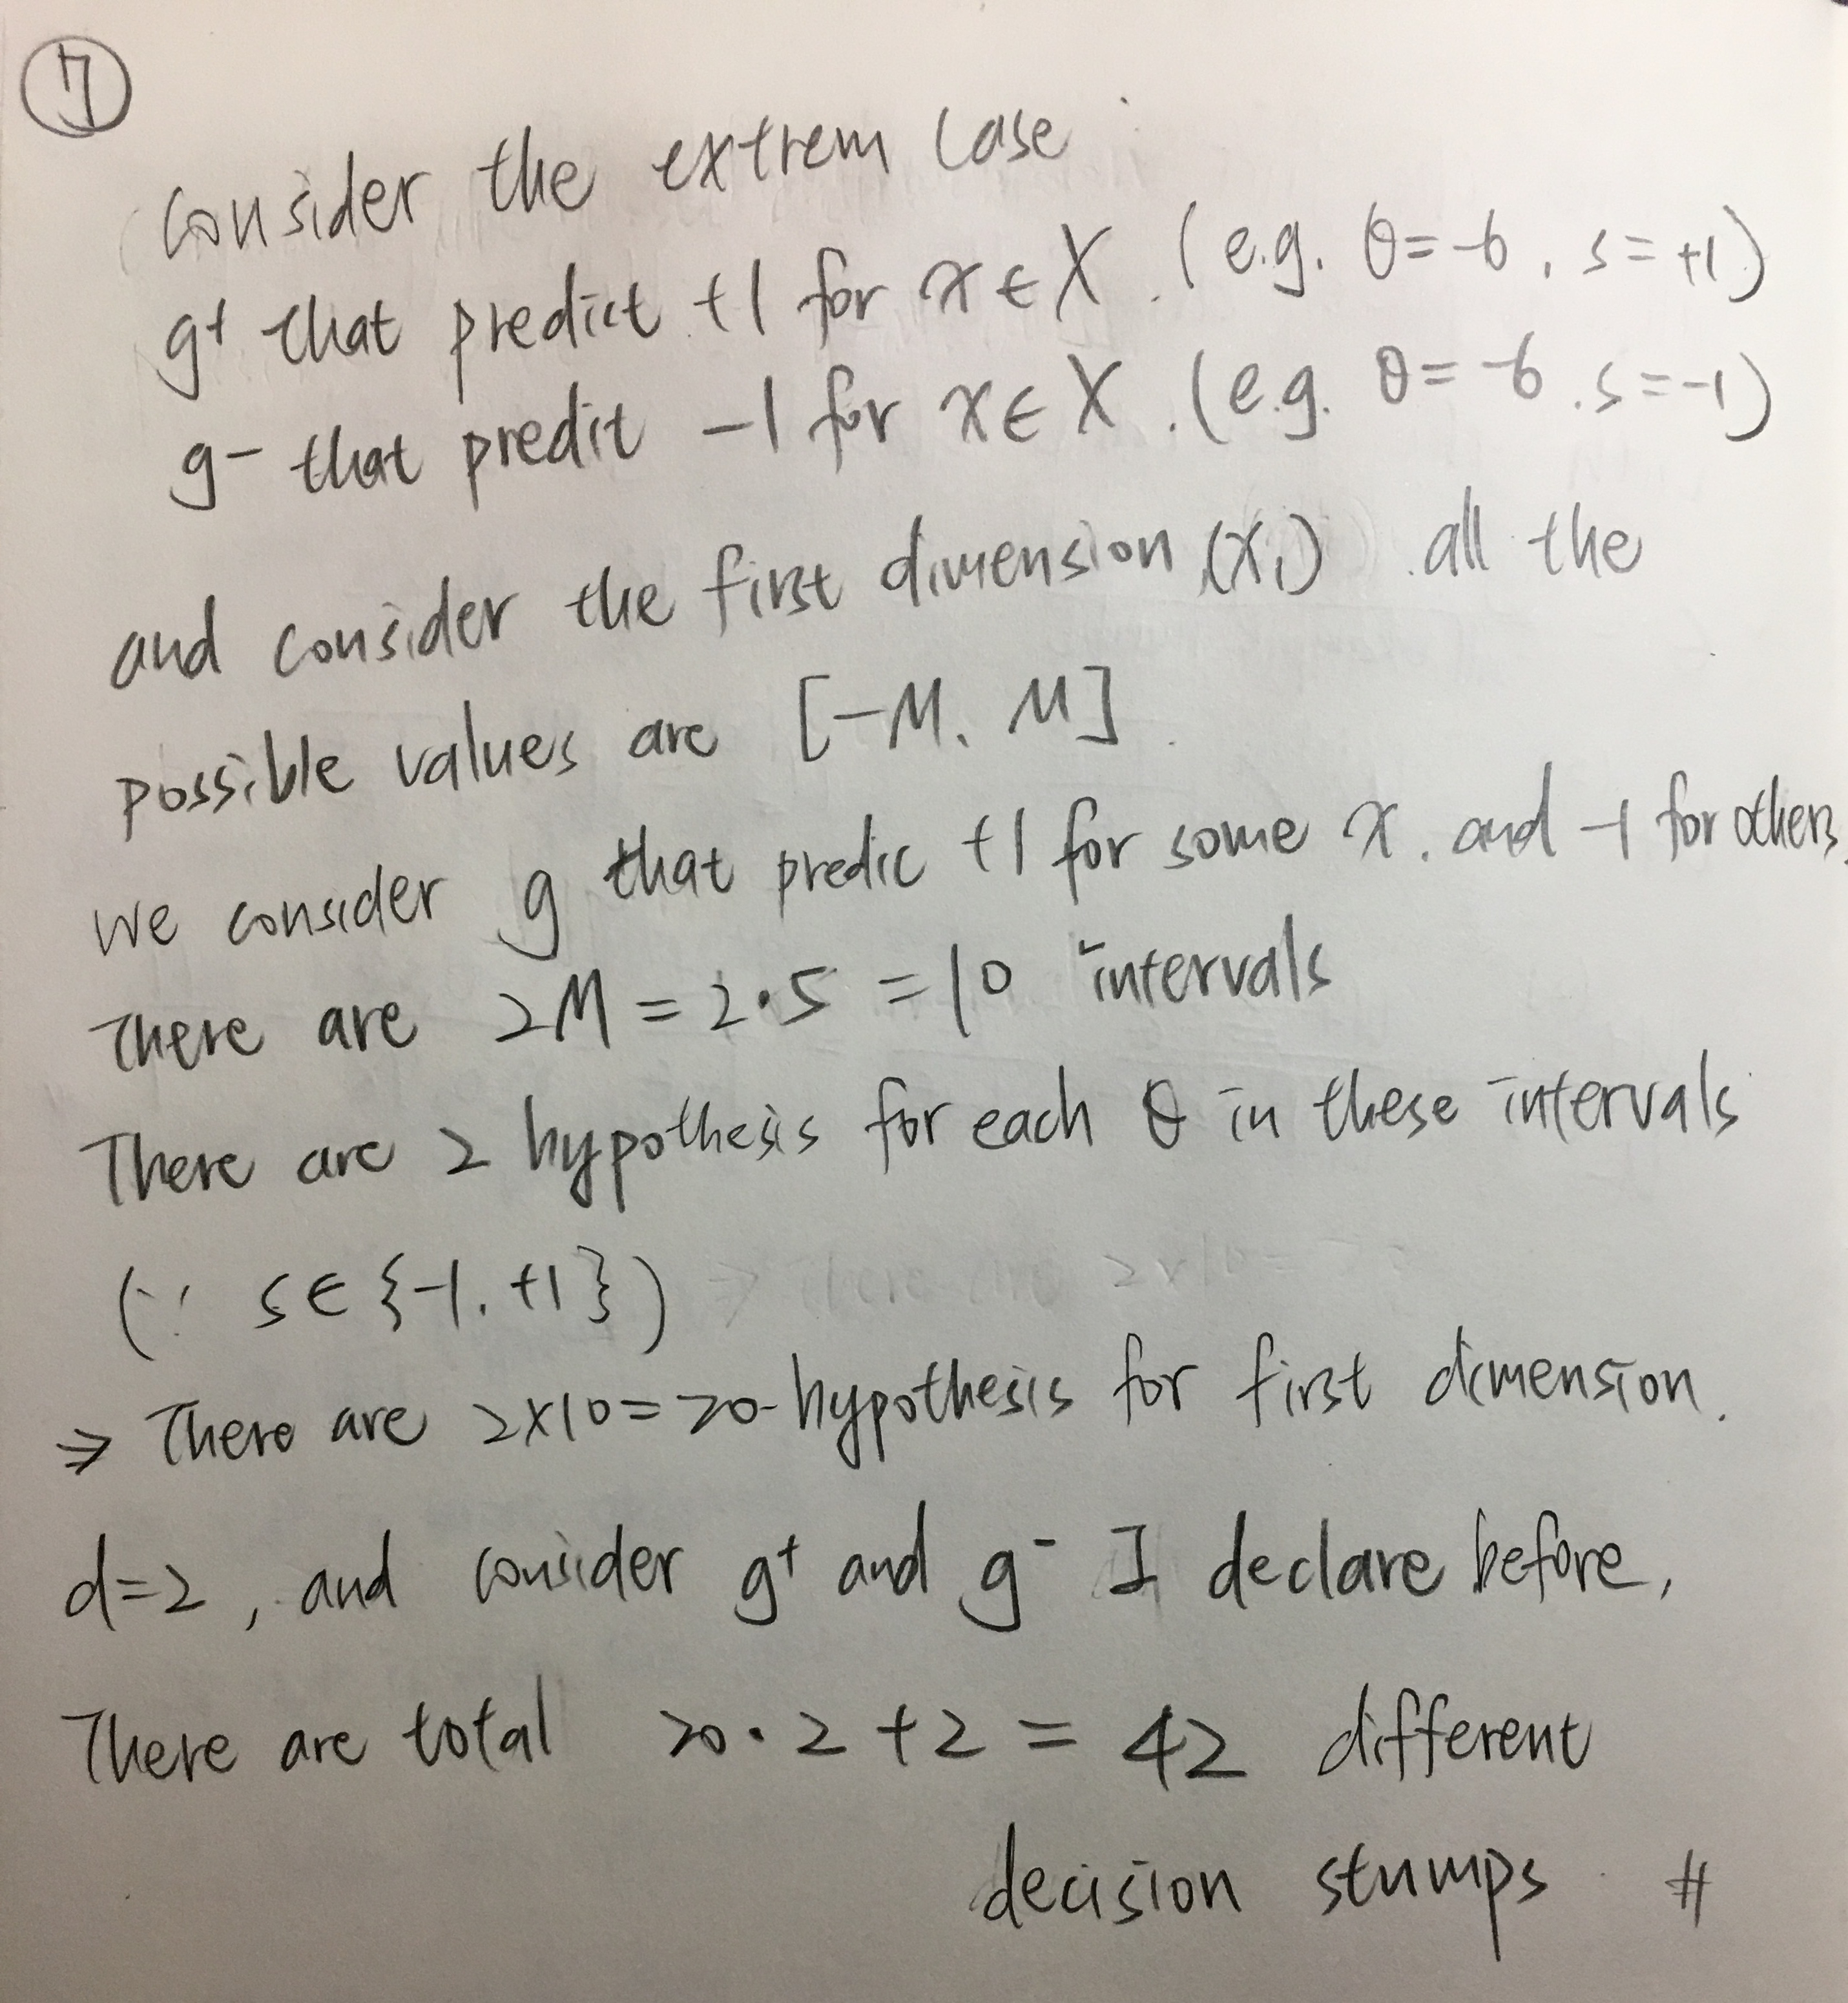 7
consider the extrem case :
g+ that predict +1 for x ∈ X . (e.g. θ=-6 , s=+1)
g- that predit -1 for x ∈ X . (e.g. θ=-6 . s=-1)
and consider the first dimension (x1) all the
possible values are [-M, M] .
we consider g that predic +1 for some x . and -1 for others.
There are 2M = 2·5 = 10 intervals
There are 2 hypothesis for each θ in these intervals
(∵ s ∈ {-1. +1})
⇒ There are 2x10=20 hypothesis for first dimension.
d=2 , and consider g+ and g- I declare before,
There are total 20·2+2 = 42 different
decision stumps . #